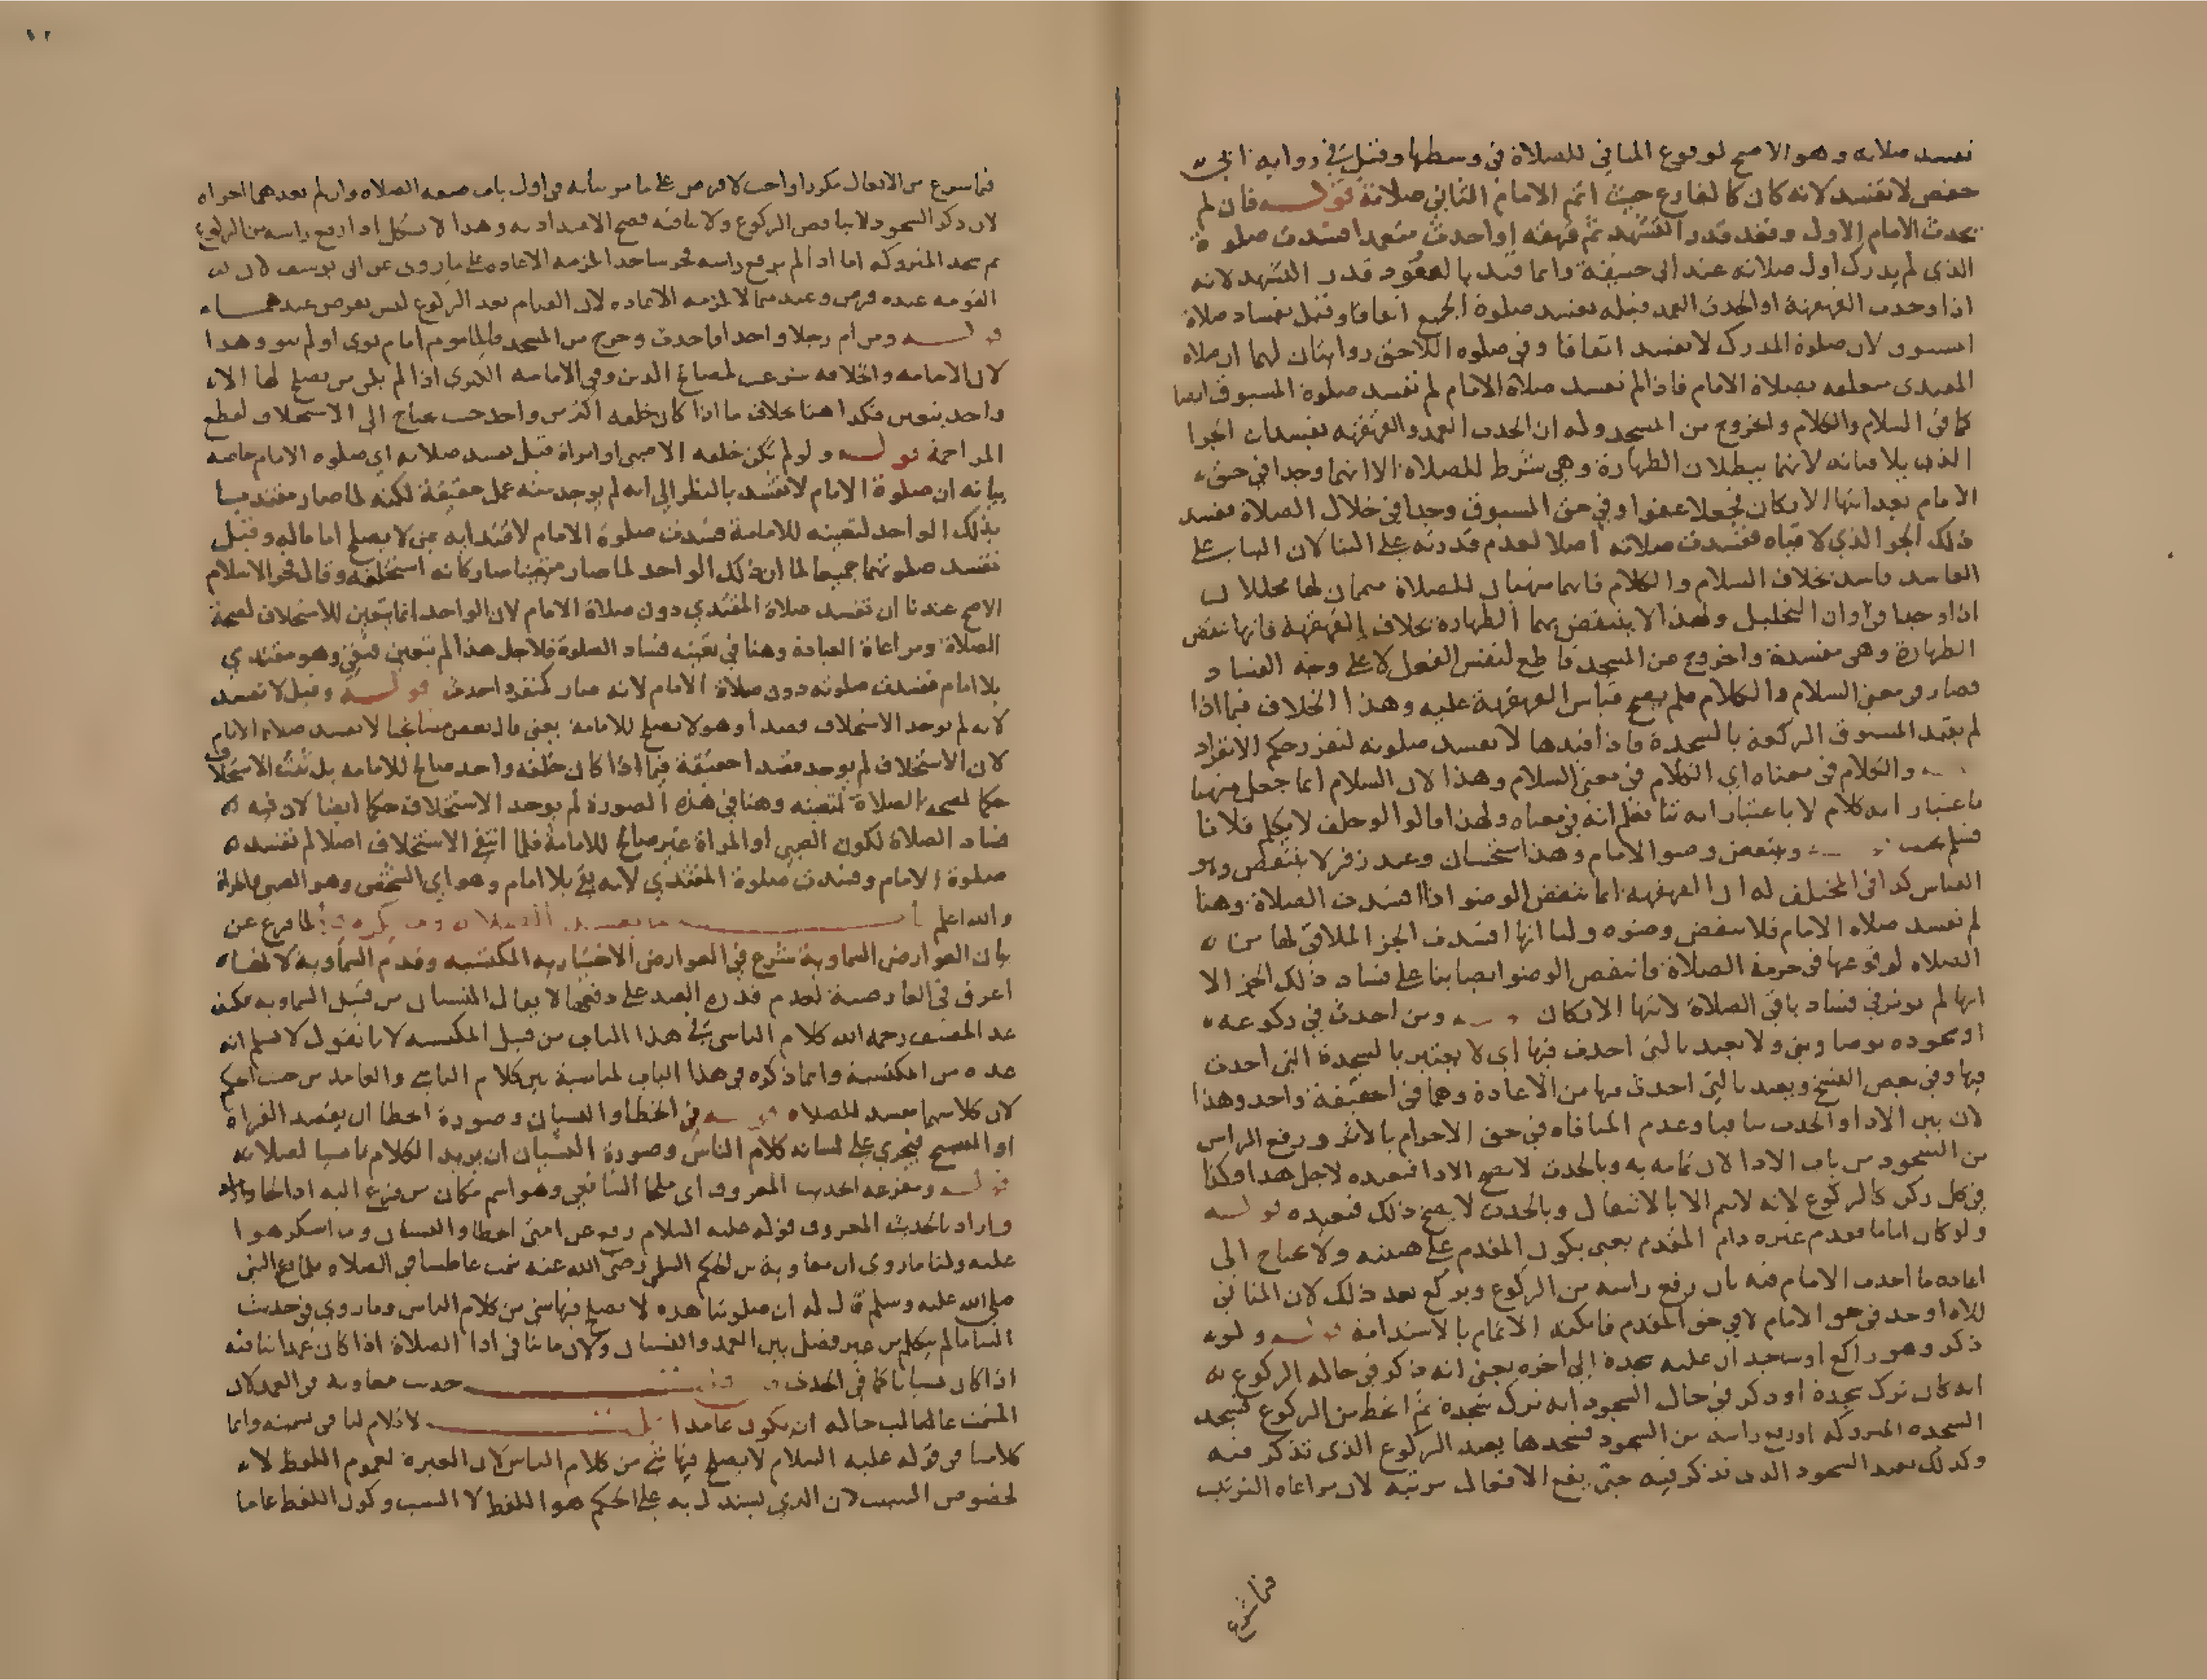 تفسد صلاته وهو الاصح لوقوع المنافي للصلاة في وسطها وقيل في رواية ابي
حفص لا تفسد لانه كان كالفارغ حيث اتم الامام الثاني صلاته قوله فان لم
يحدث الامام الاول وقعد قدر التشهد ثم قهقه او احدث متعمدا فسدت صلوة
الذي لم يدرك اول صلاته عند ابي حنيفة وانما قيد بالقعود قدر التشهد لانه
اذا وجدت القهقهة او الحدث العمد قبله تفسد صلوة الجميع اتفاقا وقيل بفساد صلاة
المسبوق لان صلوة المدرك لا تفسد اتفاقا وفي صلوه اللاحق روايتان لهما ان صلاه
المقتدى متعلقه بصلاة الامام فاذا لم تفسد صلاة الامام لم تفسد صلوة المسبوق ايضا
كما في السلام والكلام والخروج من المسجد وله ان الحدث العمد والقهقهه تفسدان الجزا
الذي يلاقيانه لانهما يبطلان الطهارة وهي شرط للصلاة الا انهما وجدا في حق
الامام بعد انتها الاركان فجعلا عفوا وفي حق المسبوق وجدا في خلال الصلاة ففسد
ذلك الجزا الذي لاقياه ففسدت صلاته اصلا لعدم قدرته على البنا لان البنا على
الفاسد فاسد بخلاف السلام والكلام فانهما منهيان للصلاة محللان لها
اذا وجدا في اوان التحليل ولهذا لا ينتقض بهما الطهارة بخلاف القهقهة فانها تنقض
الطهارة وهي مفسدة والخروج من المسجد قاطع لنفس الفعل لا على وجه الفساد
فصار في معنى السلام والكلام فلم يصح قياس القهقهة عليه وهذا الخلاف فيما اذا
لم يقيد المسبوق الركعة بالسجدة فاذا قيدها لا تفسد صلوته لتقرر حكم الانفراد
والكلام في معناه اي الكلام في معنى السلام وهذا لان السلام انما جعل منهيا
باعتبار انه كلام لا باعتبار انه ثنا فعلم انه في معناه ولهذا قالوا لو حلف لا يكلم فلانا
فسلم وينتقض وضوا الامام وهذا استحسان وعند زفر لا ينتقض وهو
القياس كذا في المختلف له ان القهقهه انما تنقض الوضوا اذا افسدت الصلاة وهنا
لم تفسد صلاه الامام فلا ينتقض وضوه ولنا انها افسدت الجز الملاقي لها من
الصلاه لوقوعها في حرمة الصلاة فانتقض الوضو ايضا بنا على فساد ذلك الجز الا
انها لم توثر في فساد باقي الصلاة لانتها الاركان ومن احدث في ركوعه
او سجوده توضا وبنى ولا يعيد بالتي احدث فيها اي لا يعتبر بالسجدة التي احدث
فيها وفي بعض النسخ ويعيد بالتي احدث فيها من الاعادة وهما في الحقيقة واحد وهذا
لان بين الادا والحدث تنافيا وعدم المنافاه في حق الاحرام بالاثر ورفع الراس
من السجود من باب الادا لان تمامه به وبالحدث لا يصح الادا فيعيده لاجل هدا وكذا
في كل ركن كالركوع لانه لا يتم الا بالانتقال وبالحدث لا يصح ذلك فيعيده قوله
ولو كان اماما فقدم غيره دام المقدم يعني يكون المقدم على هيئته ولا يحتاج الى
اعاده ما احدث الامام فيه بان رفع راسه من الركوع ويركع بعد ذلك لان المنافي
للاداء وجد في حق الامام لا في حق المقدم فامكنه الاتمام بالاستدامة قوله ولو
ذكر وهو راكع او ساجد ان عليه سجدة الى اخره يعني انه ذكر في حالة الركوع
انه كان ترك سجدة او ذكر في حال السجود انه ترك سجدة ثم انحط من الركوع فسجد
السجده المتروكه او رفع راسه من السجود فسجدها يعيد الركوع الذي تذكر فيه
وكذلك يعيد السجود الذي تذكر فيه حتى يقع الافعال مرتبه لان مراعاه الترتيب
فيما شرع
١٢
فيما شرع من الافعال مكررا واجب لا فرض على ما مر بيانه في اول باب صفه الصلاه وان لم يعدهما اجزاه
لان ذكر السجود لا يناقض الركوع ولا ينافيه فصح الاعتداد به وهذا لا يشكل اذا رفع راسه من الركوع
ثم سجد المتروكه اما اذا لم يرفع راسه فخر ساجدا لزمه الاعاده على ما روي عن ابي يوسف لان
القومه عنده فرض وعندهما لا يلزمه الاعاده لان القيام بعد الركوع ليس بفرض عندهما
قوله ومن ام رجلا واحدا فاحدث وخرج من المسجد فالماموم امام نوى او لم ينو وهذا
لان الامامه والخلافه شرعت لمصالح الدين وفي الامامه الكبرى اذا لم يبق من يصلح لها الا
واحد يتعين فكذا هنا بخلاف ما اذا كان خلفه اكثر من واحد حيث يحتاج الى الاستخلاف لقطع
المزاحمة قوله ولو لم يكن خلفه الا صبي او امراة قيل تفسد صلاته اي صلوه الامام خاصه
بيانه ان صلوة الامام لا تفسد بالنظر الى انه لم يوجد منه عمل حقيقة لكنه لما صار مقتديا
بذلك الواحد لتعينه للامامة فسدت صلوة الامام لاقتدايه بمن لا يصلح اماما له وقيل
تفسد صلوتهما جميعا لما ان ذلك الواحد لما صار متعينا صار كانه استخلفه وقال فخر الاسلام
الاصح عندنا ان تفسد صلاة المقتدي دون صلاة الامام لان الواحد انما يتعين للاستخلاف لصحة
الصلاة ومراعاة العبادة وهنا في تعينه فساد الصلوة فلاجل هذا لم يتعين فبقي وهو مقتدي
بلا امام ففسدت صلوته دون صلاة الامام لانه صار كمنفرد احدث قوله وقيل لا تفسد
لانه لم يوجد الاستخلاف قصدا وهو لا يصلح للامامة يعني قال بعض مشايخنا لا تفسد صلاة الامام
لان الاستخلاف لم يوجد قصدا حقيقة فيما اذا كان خلفه واحد صالح للامامه بل ثبت الاستخلاف
حكما لصحه الصلاة لتعينه وهنا في هذه الصورة لم يوجد الاستخلاف حكما ايضا لان فيه
فساد الصلاة لكون الصبي او المراة غير صالح للامامة فلما انتفى الاستخلاف اصلا لم تفسد
صلوة الامام وفسدت صلوة المقتدي لانه بقي بلا امام وهو اي الشخص وهو الصبي والمراة
والله اعلم باب ما يفسد الصلاة وما يكره فيها لما فرغ عن
بيان العوارض السماوية شرع في العوارض الاختياريه المكتسبه وقدم السماويه لانها
اعرق في العارضية لعدم قدره العبد على دفعها لا يقال النسيان من قبيل السماويه فكيف
عد المصنف رحمه الله كلام الناسي في هذا الباب من قبيل المكتسبه لانا نقول لا نسلم انه
عده من المكتسبة وانما ذكره في هذا الباب لمناسبة بين كلام الناسي والعامد من حيث الحكم
لان كلاهما مفسد للصلاه قوله في الخطا والنسيان وصورة الخطا ان يقصد القراة
او التسبيح فيجري على لسانه كلام الناس وصورة النسيان ان يريد الكلام ناسيا لصلاته
قوله ومفزعه الحديث المعروف اى ملجا الشافعي وهو اسم مكان من فزع اليه اذا لجا
واراد بالحديث المعروف قوله عليه السلام رفع عن امتي الخطا والنسيان وما استكرهوا
عليه ولنا ما روي ان معاوية بن الحكم السلمي رضي الله عنه شمت عاطسا في الصلاه فلما فرغ النبي
صلى الله عليه وسلم قال له ان صلوتنا هذه لا يصلح فيها شي من كلام الناس وما روي في حديث
البنا ما لم يتكلم من غير فصل بين العمد والنسيان ولان ما ينافي ادا الصلاة اذا كان عمدا ينافيه
اذا كان نسيانا كما في الحدث فان قيل حديث معاوية في العمد لان
المشمت غالبا حاله ان يكون عامدا قلنا لا كلام لنا في تشميته وانما
كلامنا في قوله عليه السلام لا يصلح فيها شي من كلام الناس لان العبرة لعموم اللفظ لا
لخصوص السبب لان الذي يستدل به على الحكم هو اللفظ لا السبب وكون اللفظ عاما